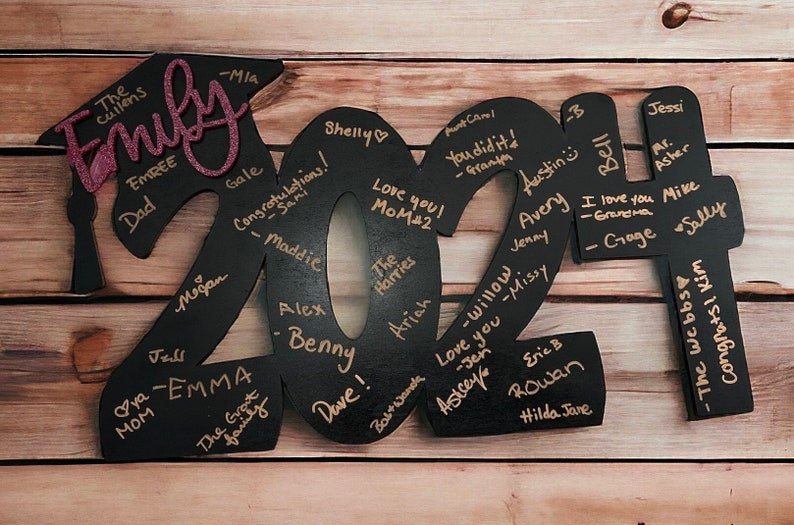 Emily
The
Cullens
-Mia
EMREE
Gale
Dad
Megan
Jess
♡ya
MOM
-EMMA
The Grant
family
Shelly♡
Congratulations!
- Sami
- Maddie
Love you!
MOM#2
The
Harries
Alex
- Benny
Ariah
Dave!
Bob+Wanda
Aunt Carol
You did it!
- Grandpa
Austin☺
Avery
Jenny
- Missy
- Willow
Love you
- Jen
Ashley♥
Eric B
Rowan
Hilda Jane
:3
Bell
I love you
- Grandma
- Gage
Jessi
Mr.
Asher
Mike
♥Sally
- The Webbs♥
Congrats! Kim
2024